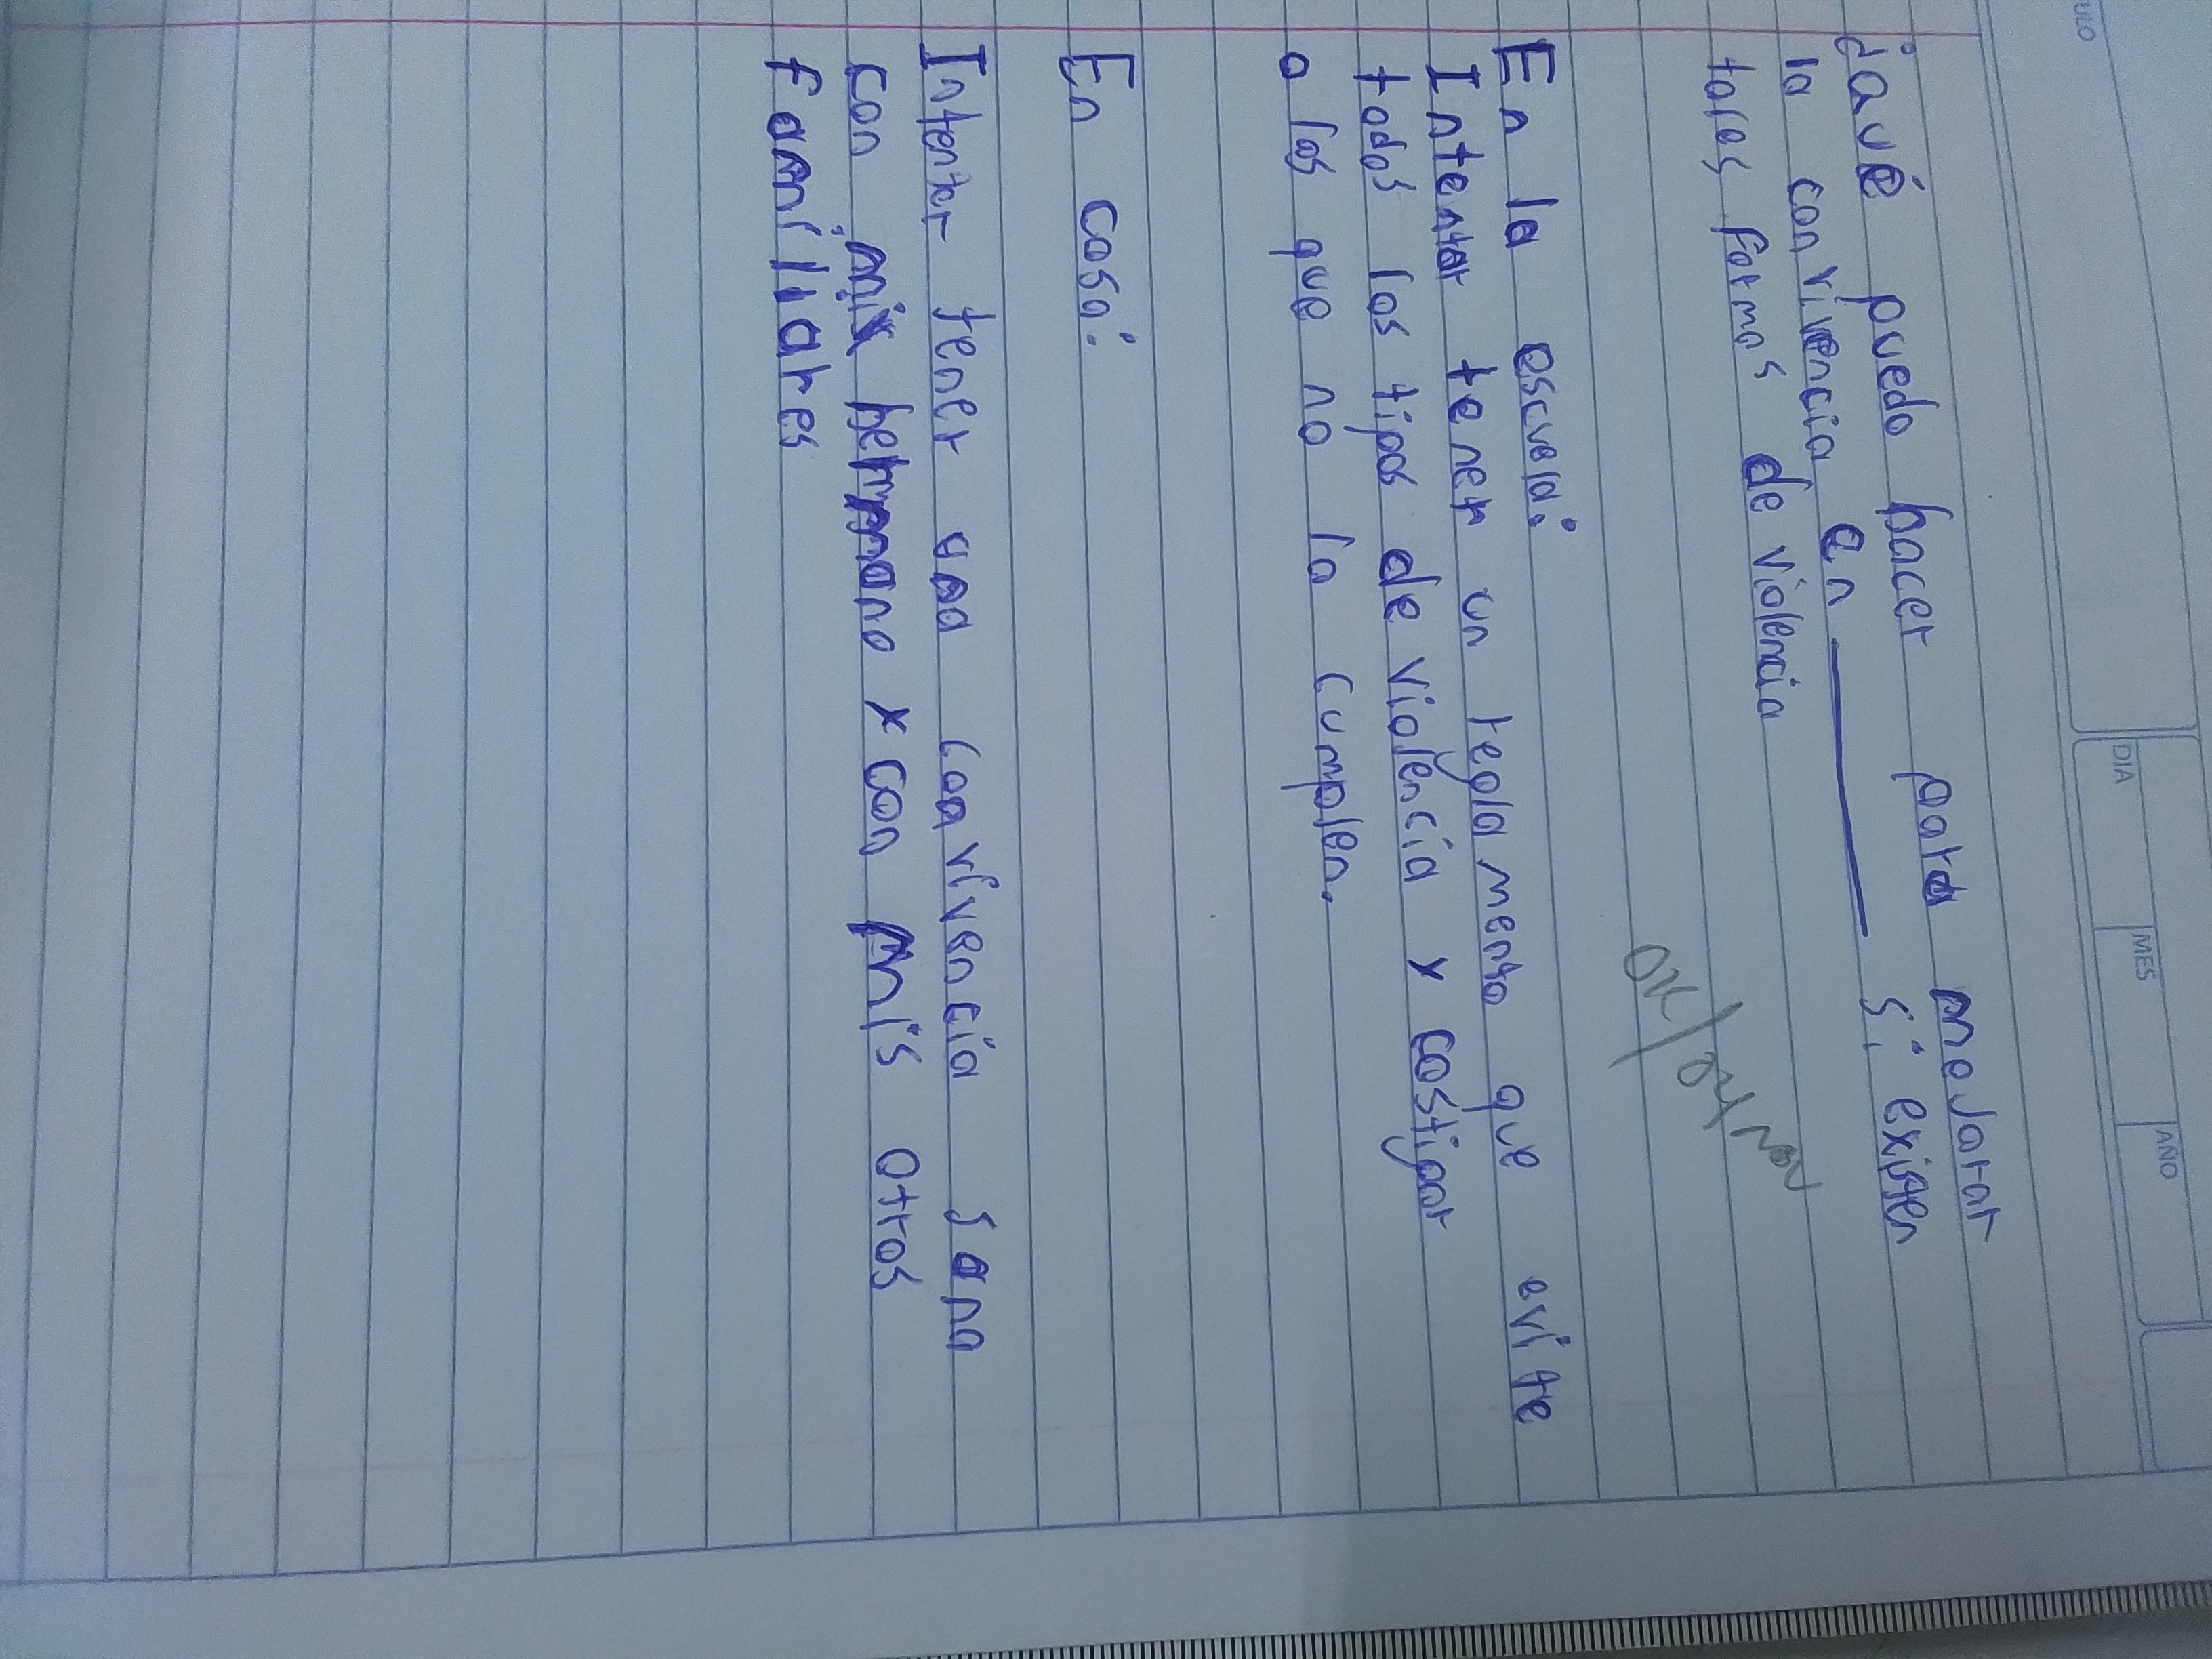 ULO
DIA MES AÑO
¿Qué puedo hacer para mejorar
la convivencia en ______ si existen
tales formas de violencia
En la escuela:
Intentar tener un reglamento que evite
todos los tipos de violencia y castigar
a las que no lo cumplen.
En casa:
Intentar tener una convivencia sana
con mis hermano y con mis otros
familiares